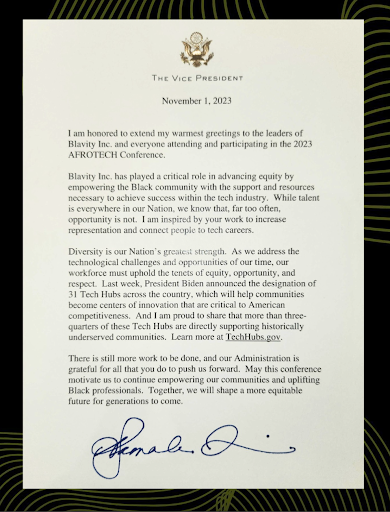 THE VICE PRESIDENT
November 1, 2023
I am honored to extend my warmest greetings to the leaders of
Blavity Inc. and everyone attending and participating in the 2023
AFROTECH Conference.
Blavity Inc. has played a critical role in advancing equity by
empowering the Black community with the support and resources
necessary to achieve success within the tech industry. While talent
is everywhere in our Nation, we know that, far too often,
opportunity is not. I am inspired by your work to increase
representation and connect people to tech careers.
Diversity is our Nation's greatest strength. As we address the
technological challenges and opportunities of our time, our
workforce must uphold the tenets of equity, opportunity, and
respect. Last week, President Biden announced the designation of
31 Tech Hubs across the country, which will help communities
become centers of innovation that are critical to American
competitiveness. And I am proud to share that more than three-
quarters of these Tech Hubs are directly supporting historically
underserved communities. Learn more at TechHubs.gov.
There is still more work to be done, and our Administration is
grateful for all that you do to push us forward. May this conference
motivate us to continue empowering our communities and uplifting
Black professionals. Together, we will shape a more equitable
future for generations to come.